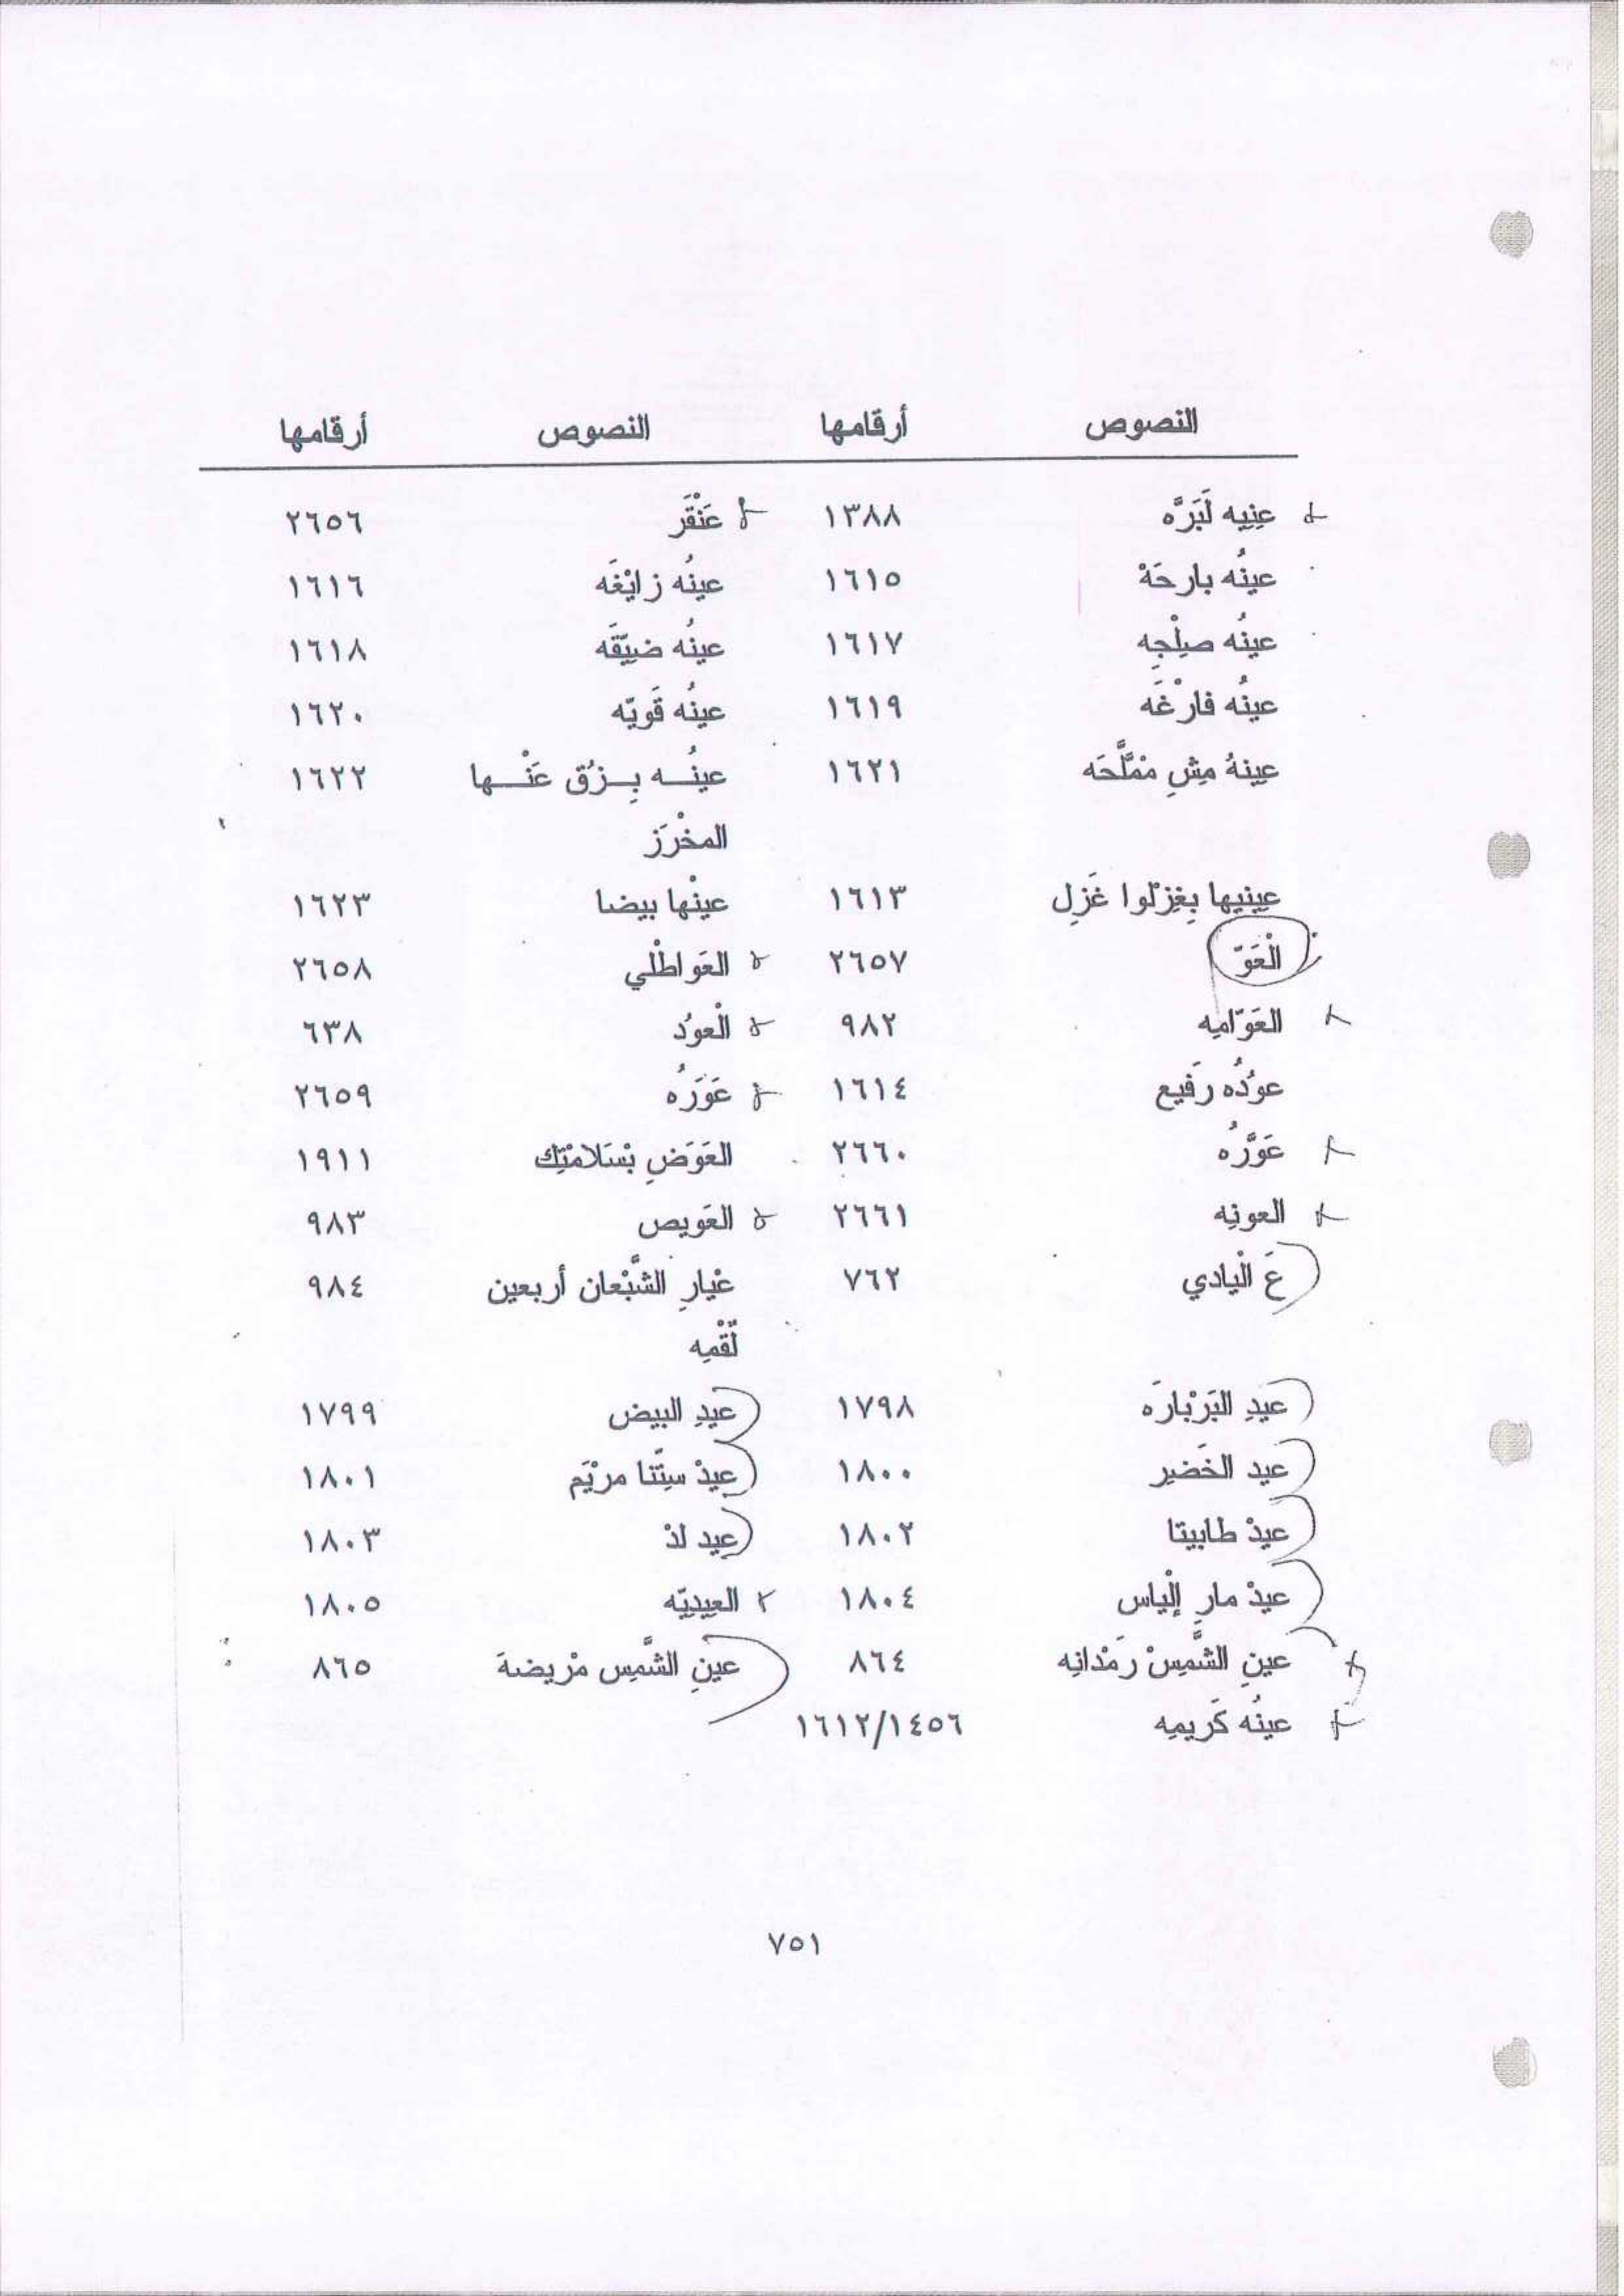 النصوص أرقامها النصوص أرقامها
عنِيِه لَبَرَّه ١٣٨٨ عَنْقَر ٢٦٥٦
عينُه بارحَهْ ١٦١٥ عينُه زايْغَه ١٦١٦
عينُه صِلْجِه ١٦١٧ عينُه ضيّقَه ١٦١٨
عينُه فارْغَه ١٦١٩ عينُه قَويّه ١٦٢٠
عينهُ مِشِ مْمَلَّحَه ١٦٢١ عينُه بِزُق عَنْها ١٦٢٢
المخْرَز
عينيها بِغِزْلوا غَزِل ١٦١٣ عينْها بيضا ١٦٢٣
الْعَوّ ٢٦٥٧ العَواطْلي ٢٦٥٨
العَوّامِه ٩٨٢ الْعوُد ٦٣٨
عوُدُه رَفيع ١٦١٤ عَوَرُه ٢٦٥٩
عَوَّرُه ٢٦٦٠ العَوَضِ بْسَلامْتِك ١٩١١
العونِه ٢٦٦١ العَويص ٩٨٣
عَ الْيادي ٧٦٢ عْيارِ الشَّبْعان أربعين ٩٨٤
لُقْمِه
عيدِ البَرْبارَه ١٧٩٨ عيدِ البيض ١٧٩٩
عيد الخَضير ١٨٠٠ عيدْ ستّنا مرْيَم ١٨٠١
عيدْ طابيتا ١٨٠٢ عيد لدْ ١٨٠٣
عيدْ مارِ إلْياس ١٨٠٤ العيديّه ١٨٠٥
عينِ الشَّمِسْ رَمْدانِه ٨٦٤ عينِ الشَّمِس مْريضة ٨٦٥
عينُه كَريمِه ١٦١٢/١٤٥٦
٧٥١